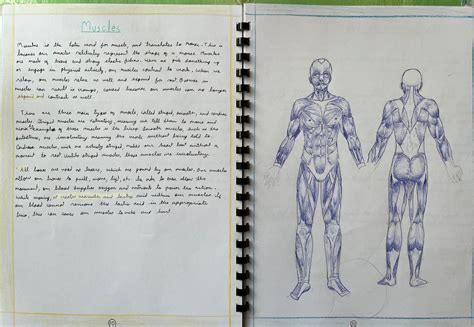 Muscles
Musculus is the latin word for muscle, and translates to mouse. This is
because our muscles relatively represent the shape of a mouse. Muscles
are made of tissue and strong elastic fibres. When we pick something up
or engage in physical activity, our muscles contract to work. When we
relax, our muscles relax as well and expand
muscles can result in cramps, caused because our muscles can no longer
expand and contract as well.
There are three main types of muscle, called striped, smooth, and cardiac
muscle. Striped muscles are voluntary, meaning we tell them to move and
work. Examples of those muscles is the bicep. Smooth muscles, such as the
are involuntary meaning they work without being told to.
Cardiac muscle, which are actually striped, makes our heart beat without a
moment to rest. Unlike striped muscle, these muscles are involuntary.
All bones are used as levers, which are moved by our muscles. Our muscles
allow our bones to pull, move, lift, etc. In order to allow the
movement, our blood supplies oxygen and nutrients to power the action.
While moving, and lactic acid our muscles. If
our blood cannot remove the lactic acid in the appropriate
time, this can cause our muscles to ache and hurt.